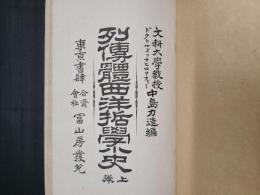 文科大學教授
ドクトルオフフヒロソフィー
中島力造編
列傳體西洋哲學小史
上卷
東京書肆
合資
會社
冨山房發兌